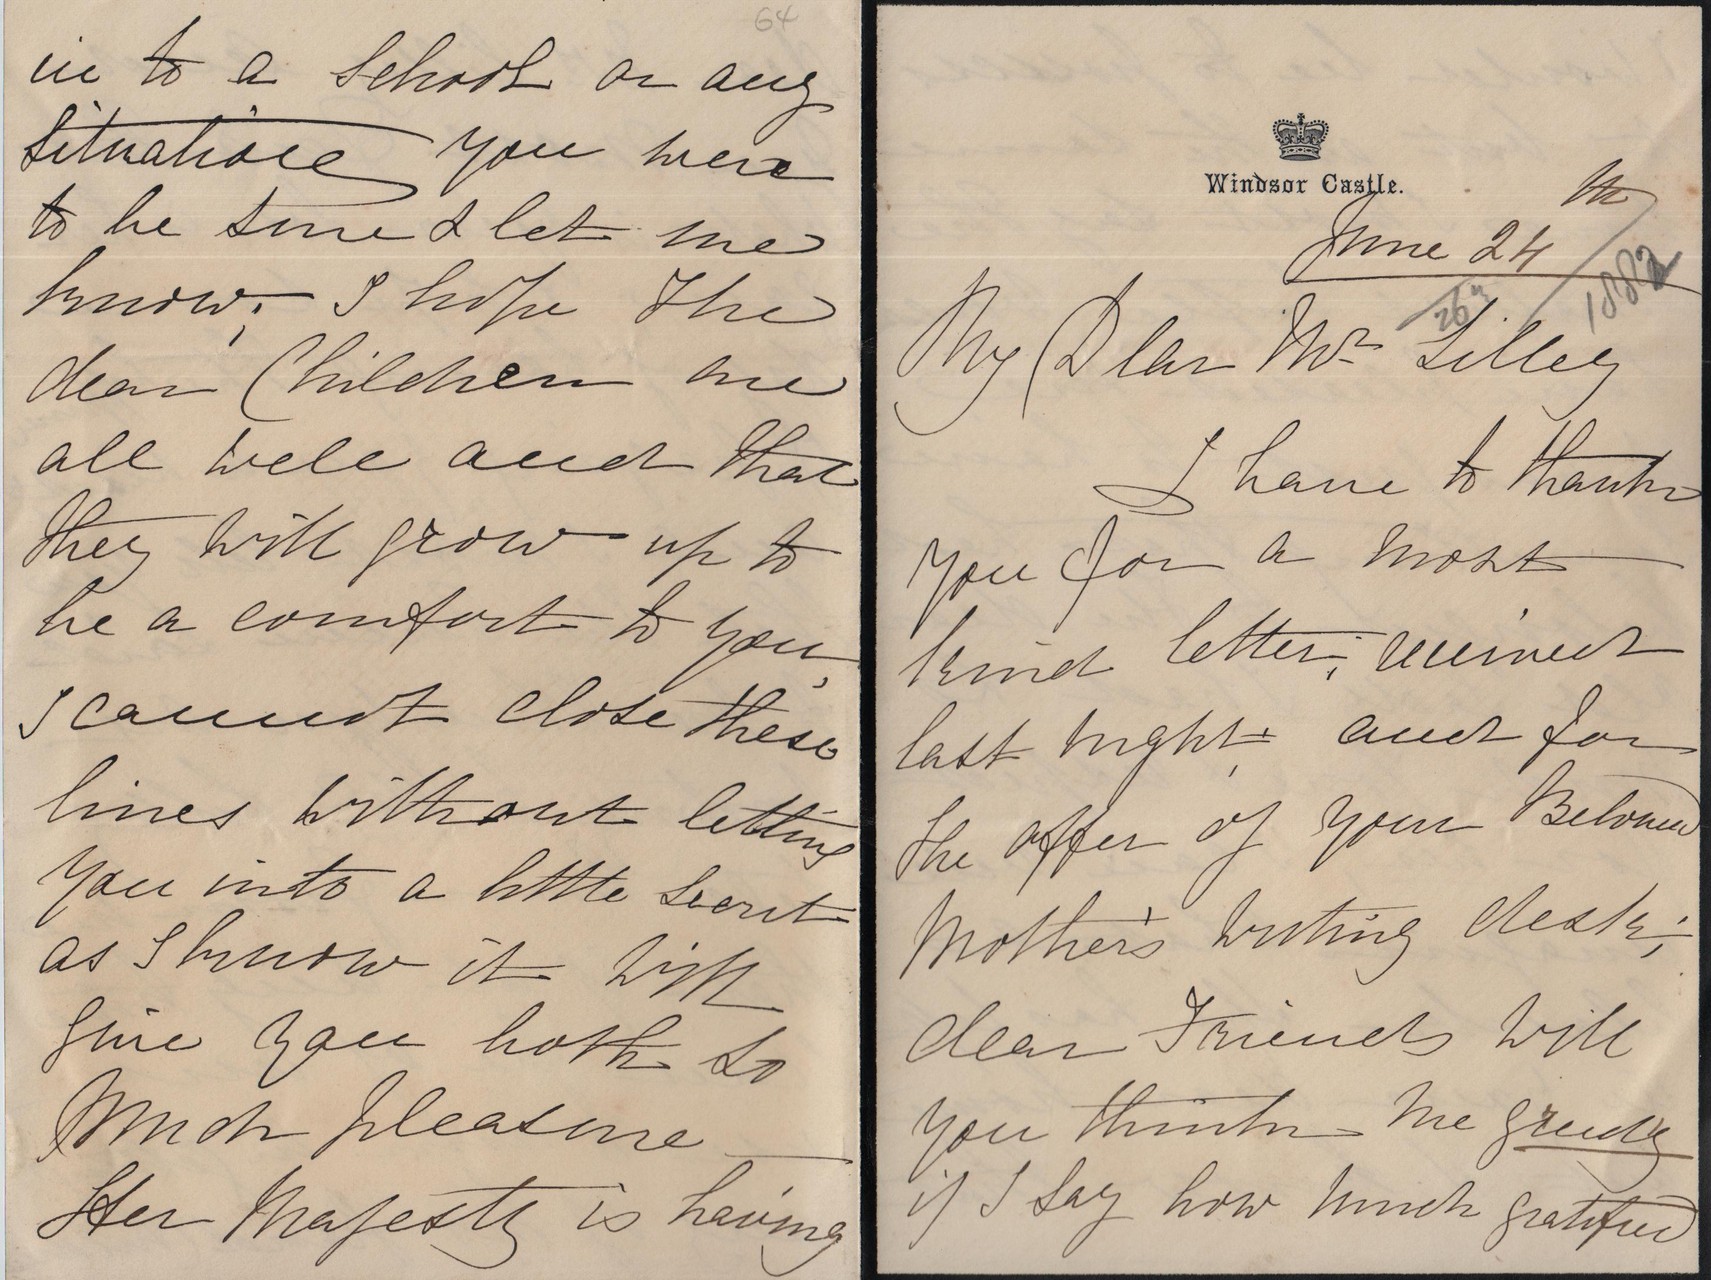 64
in to a School or any
Situations you were
to be sure & let me
know; I hope the
dear Children are
all well and that
they will grow up to
be a comfort to you,
I cannot close these
lines without letting
you into a little secret
as I know it will
give you both so
Much pleasure
Her Majesty is having
Windsor Castle.
June 24th
26
1882
My Dear Mr Lilley
I have to thank
you for a most
kind letter; received
last night, and for
the offer of your Beloved
Mother's writing desk;
dear Friends will
you think me greedy
if I say how much gratified